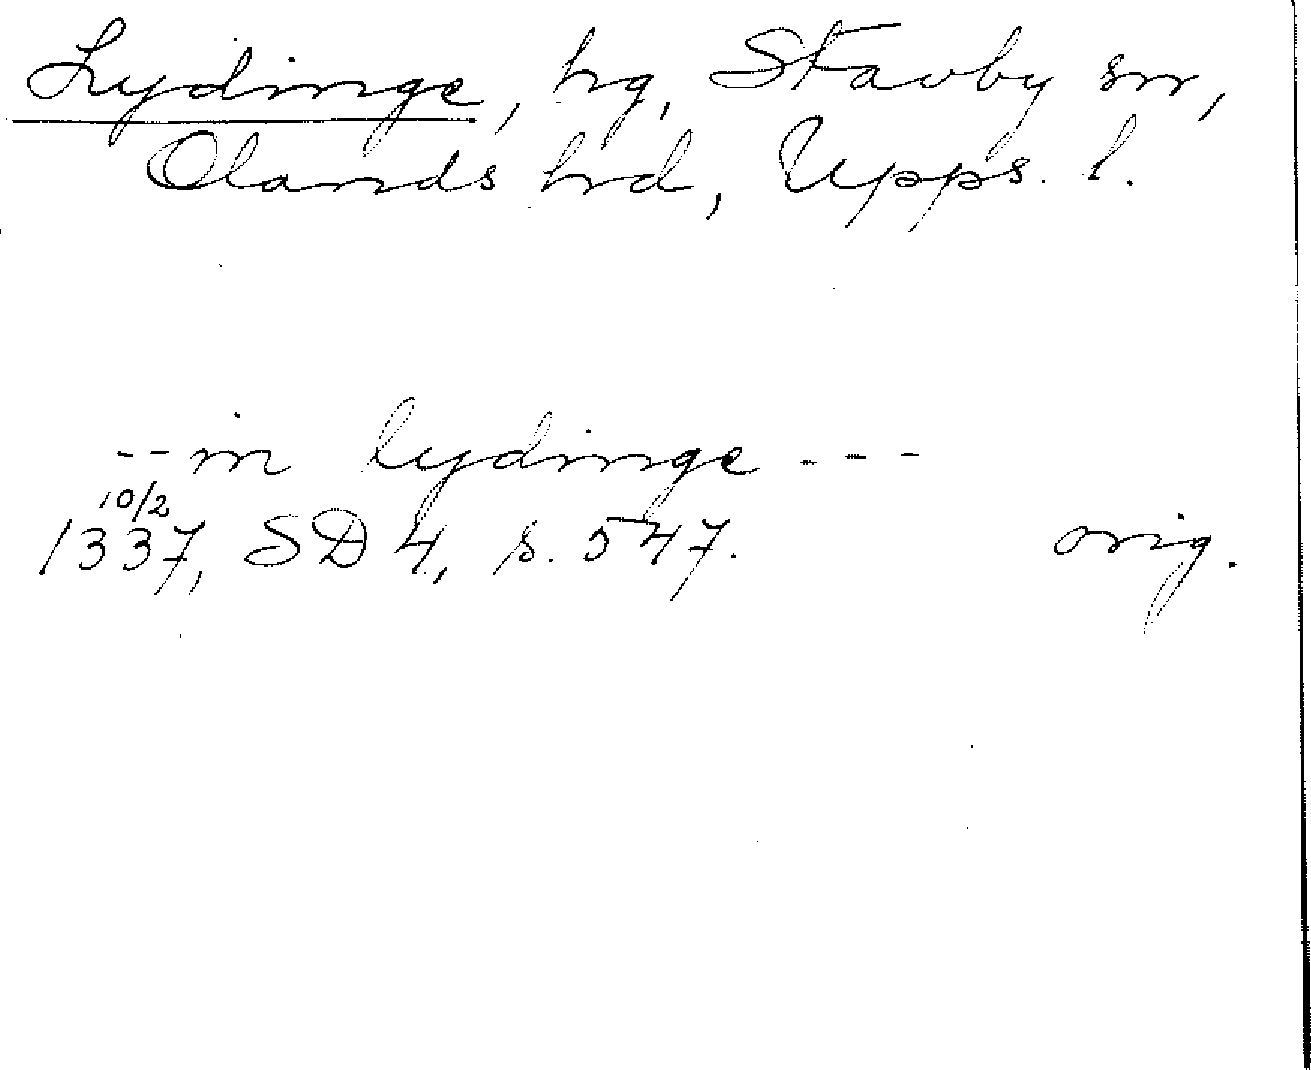 Lydinge, hg, Stavby sn,
Olands hrd, Upps. l.
-- in lydinge ---
10/2
1337, SD 4, s. 547. orig.